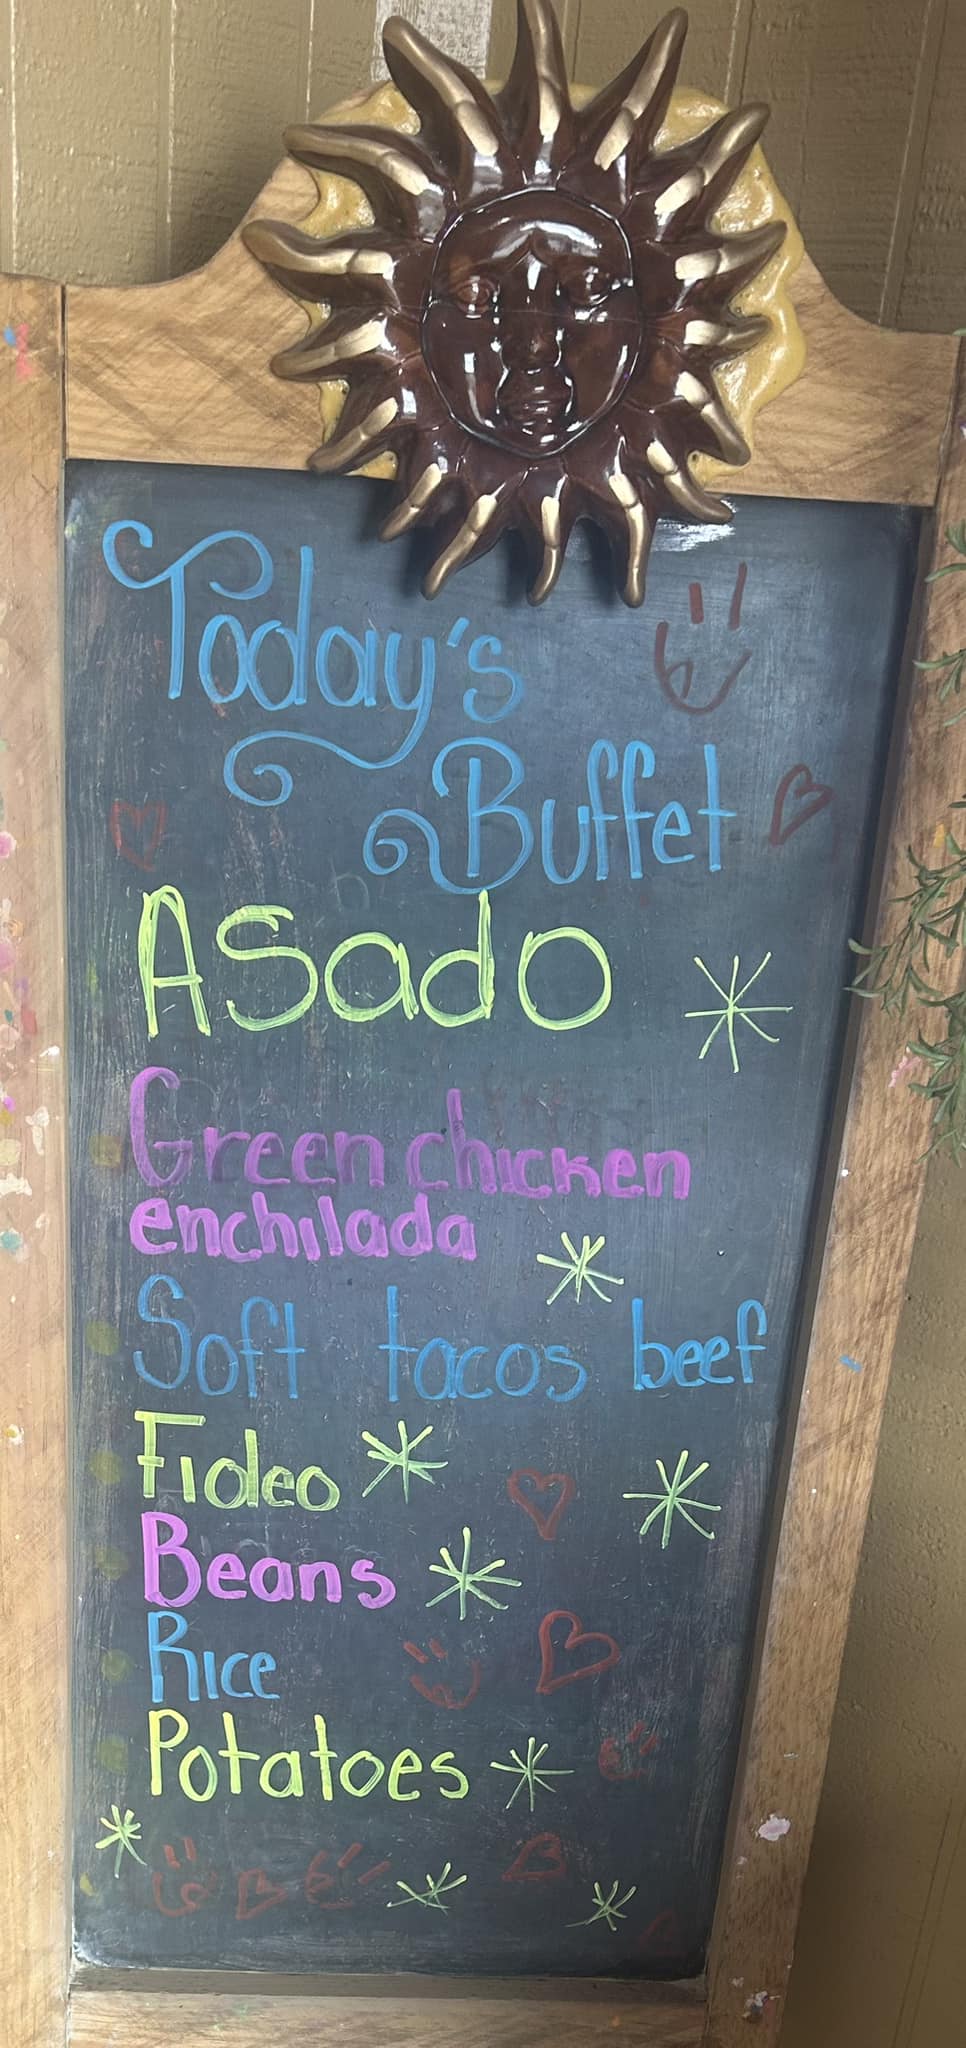 Today's
Buffet
ASado
Green chicken
enchilada
Soft tacos beef
Fideo
Beans
Rice
Potatoes